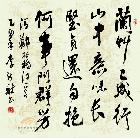 蘭草已成行
山中意味長
堅貞還自抱
何事鬥群芳